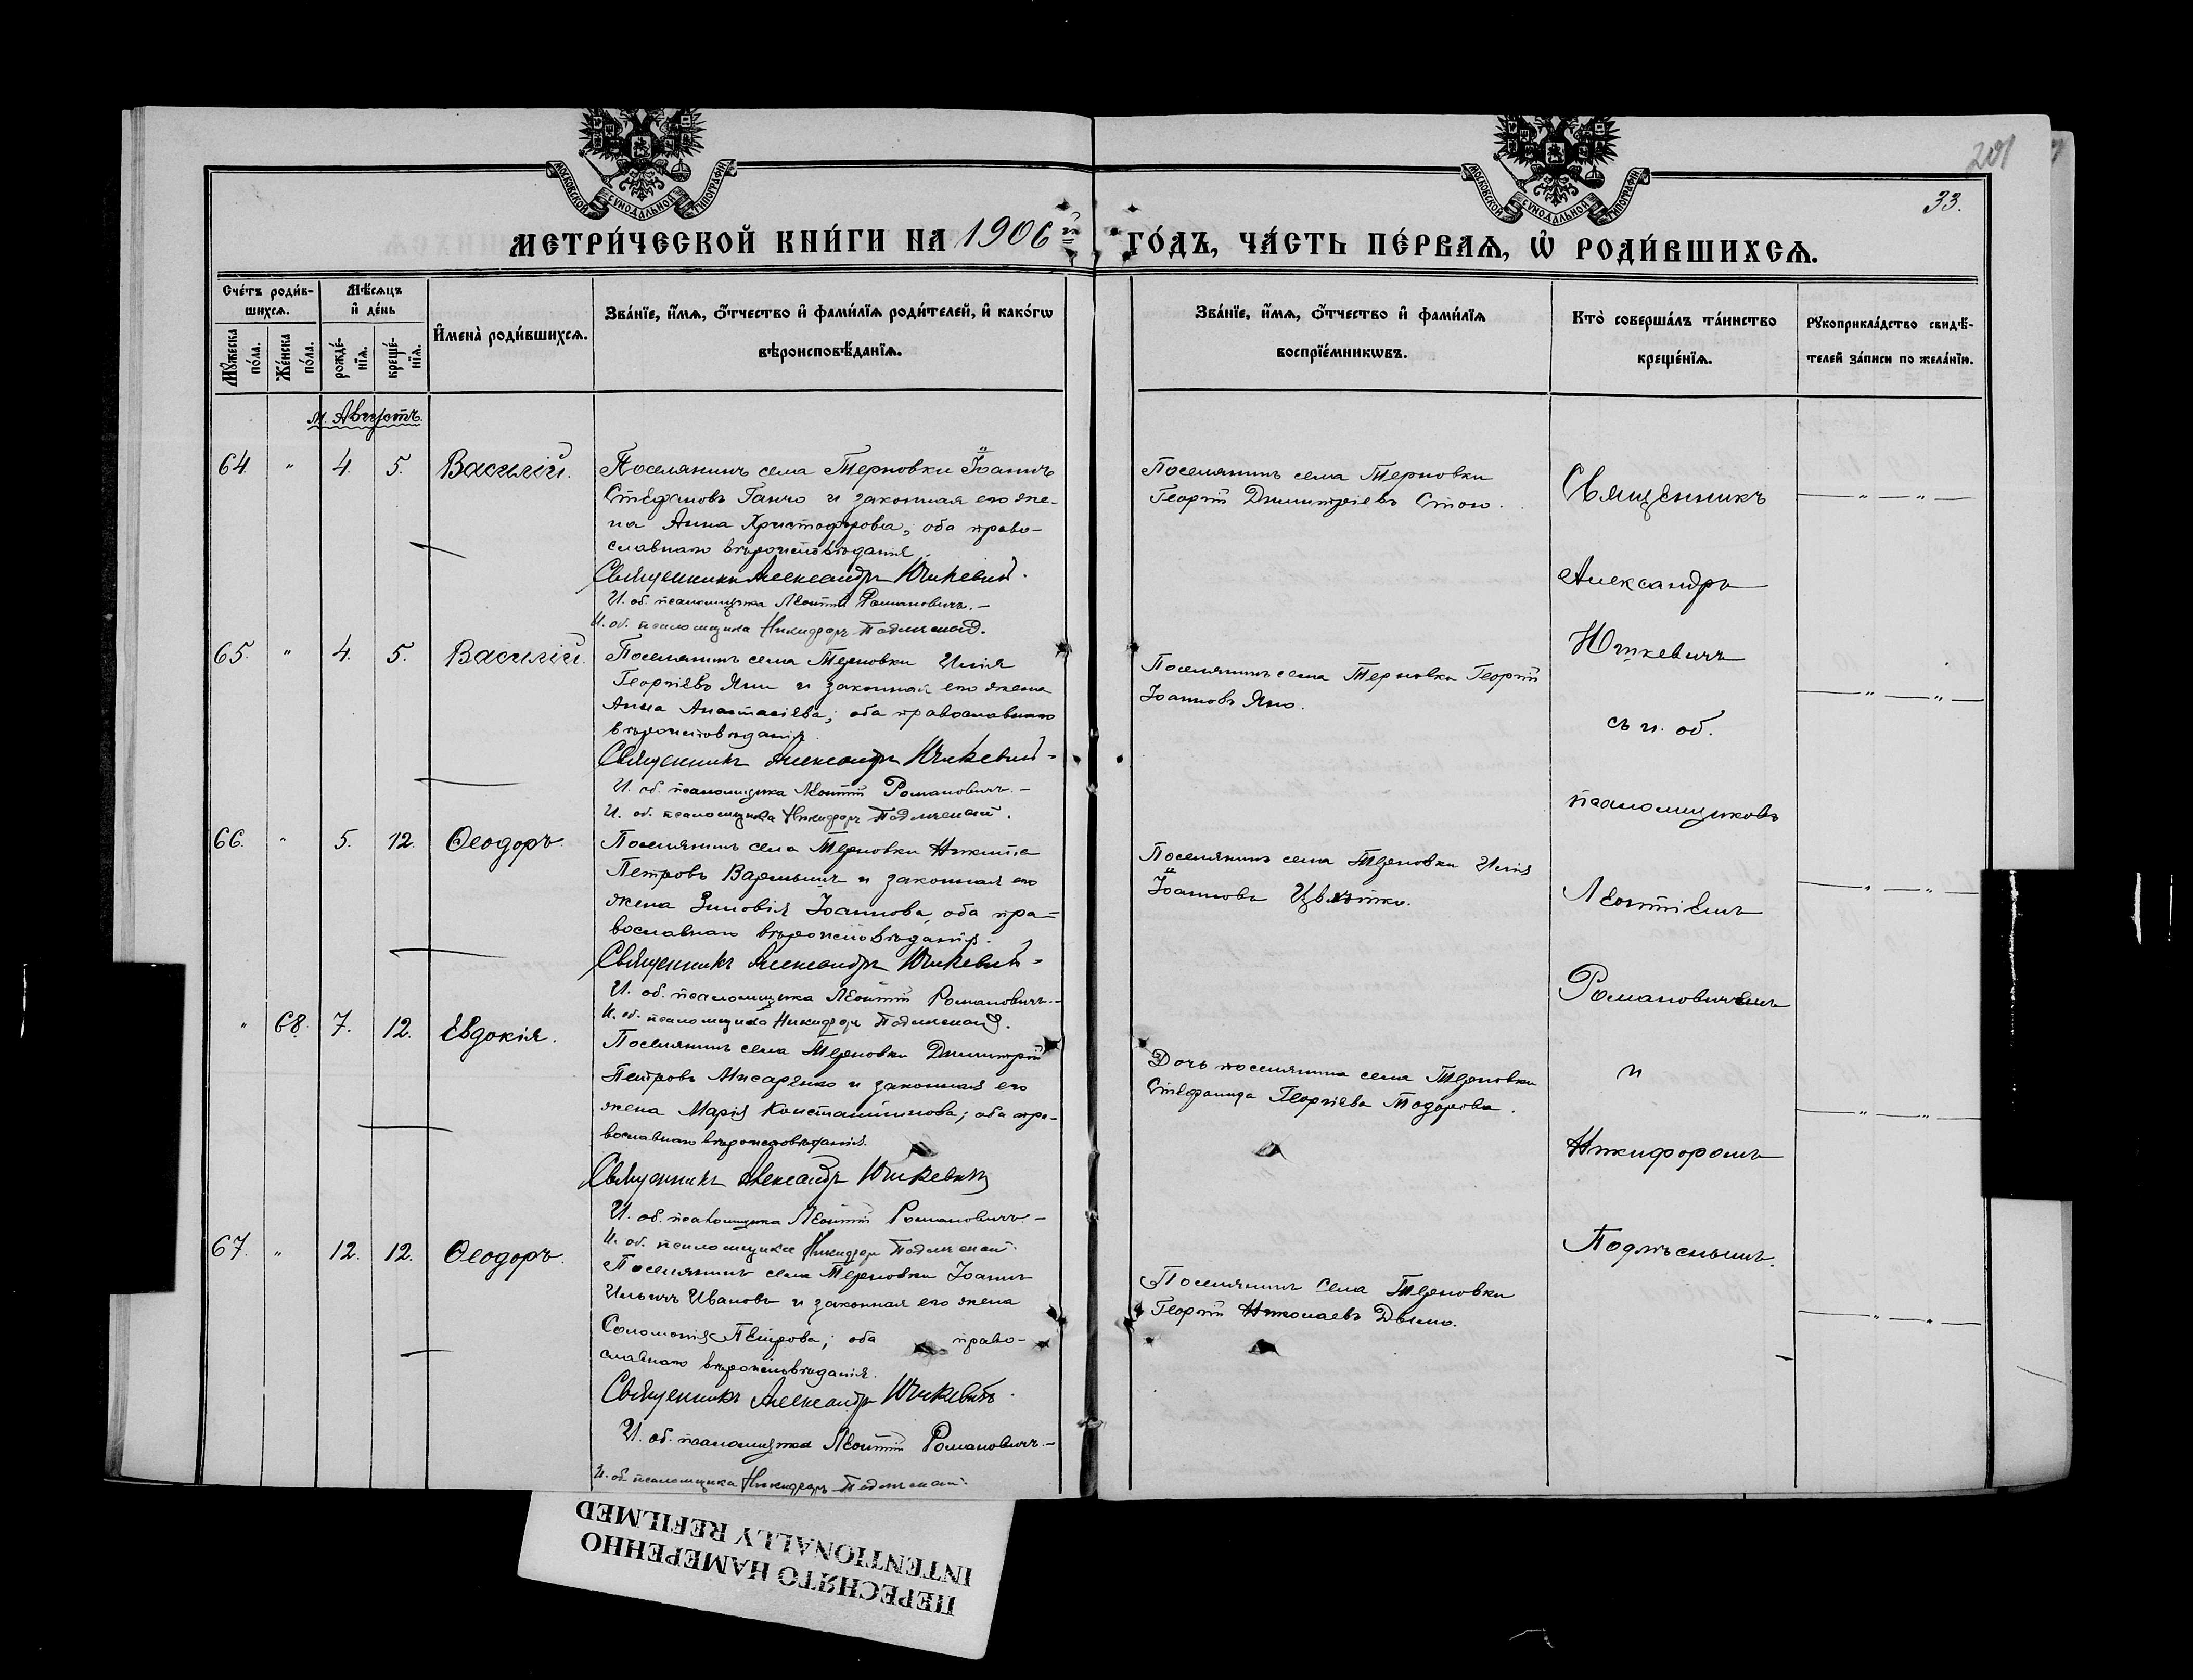 201
33.
МОСКОВСКОЙ СѴНОДАЛЬНОЙ ТИПОГРАФІИ
МОСКОВСКОЙ СѴНОДАЛЬНОЙ ТИПОГРАФІИ
МЕТРИ́ЧЕСКОЙ КНИ́ГИ НА 1906й ГО́ДЪ, ЧА́СТЬ ПЕ́РВАѦ, Ѡ҆ РОДИ́ВШИХСѦ.
Сче́тъ роди́в-
шихсѧ.
Мꙋ́жеска по́ла.
Же́нска по́ла.
Мѣ́сѧцъ
и҆ де́нь
рожде́-
нїѧ.
креще́-
нїѧ.
И҆мена̀ роди́вшихсѧ.
Зва́нїе, и҆́мѧ, ѻ҆́тчество и҆ фами́лїѧ роди́телей, и҆ како́гѡ
вѣроисповѣ́данїѧ.
Зва́нїе, и҆́мѧ, ѻ҆́тчество и҆ фами́лїѧ
воспрїе́мникѡвъ.
Кто̀ соверша́лъ та́инство
креще́нїѧ.
Рꙋкоприкла́дство свидѣ́-
телей за́писи по жела́нїю.
м. Августъ.
64 " 4. 5. Василій.
Поселянинъ села Терновки Іоаннъ
Стефановъ Ганчо и законная его же-
на Анна Христофорова, оба право-
славнаго вѣроисповѣданія.
Священникъ Александръ Юшкевич.
И. об. псаломщика Леонтій Романовичъ.-
И. об. псаломщика Никифоръ Подлѣсный.
Поселянинъ села Терновки
Георгій Димитріевъ Стою.
65. " 4. 5. Василій.
Поселянинъ села Терновки Илія
Георгіевъ Яни и законная его жена
Анна Анастасіева; оба православнаго
вѣроисповѣданія.
Священникъ Александръ Юшкевич-
И. об. псаломщика Леонтій Романовичъ.-
И. об. псаломщика Никифоръ Подлѣсный.
Поселянинъ села Терновки Георгій
Іоанновъ Яно.
66. " 5. 12. Ѳеодоръ.
Поселянинъ села Терновки Никита
Петровъ и законная его
жена Зиновія Іоаннова, оба пра-
вославнаго вѣроисповѣданія.
Священникъ Александръ Юшкевич-
И. об. псаломщика Леонтій Романовичъ.-
И. об. псаломщика Никифоръ Подлѣсный.
Поселянинъ села Терновки Илія
Іоанновъ Цвятко.
" 68. 7. 12. Евдокія.
Поселянинъ села Терновки Димитрій
Петровъ Мисаренко и законная его
жена Марія Константинова; оба пра-
вославнаго вѣроисповѣданія.
Священникъ Александръ Юшкевичъ
И. об. псаломщика Леонтій Романовичъ.-
И. об. псаломщика Никифоръ Подлѣсный.
Дочь поселянина села Терновки
Стефанида Георгіева Тодорова.
67. " 12. 12. Ѳеодоръ.
Поселянинъ села Терновки Іоаннъ
Ильичъ Ивановъ и законная его жена
Соломонія Петрова; оба право-
славнаго вѣроисповѣданія.
Священникъ Александръ Юшкевичъ.
И. об. псаломщика Леонтій Романовичъ.-
И. об. псаломщика Никифоръ Подлѣсный.
Поселянинъ села Терновки
Георгій Николаевъ Дымо.
Священникъ
Александръ
Юшкевичъ
съ и. об.
псаломщиковъ
Леонтіемъ
Романовичемъ
и
Никифоромъ
Подлѣснымъ.
ПЕРЕСНЯТО НАМЕРЕННО
INTENTIONALLY REFILMED